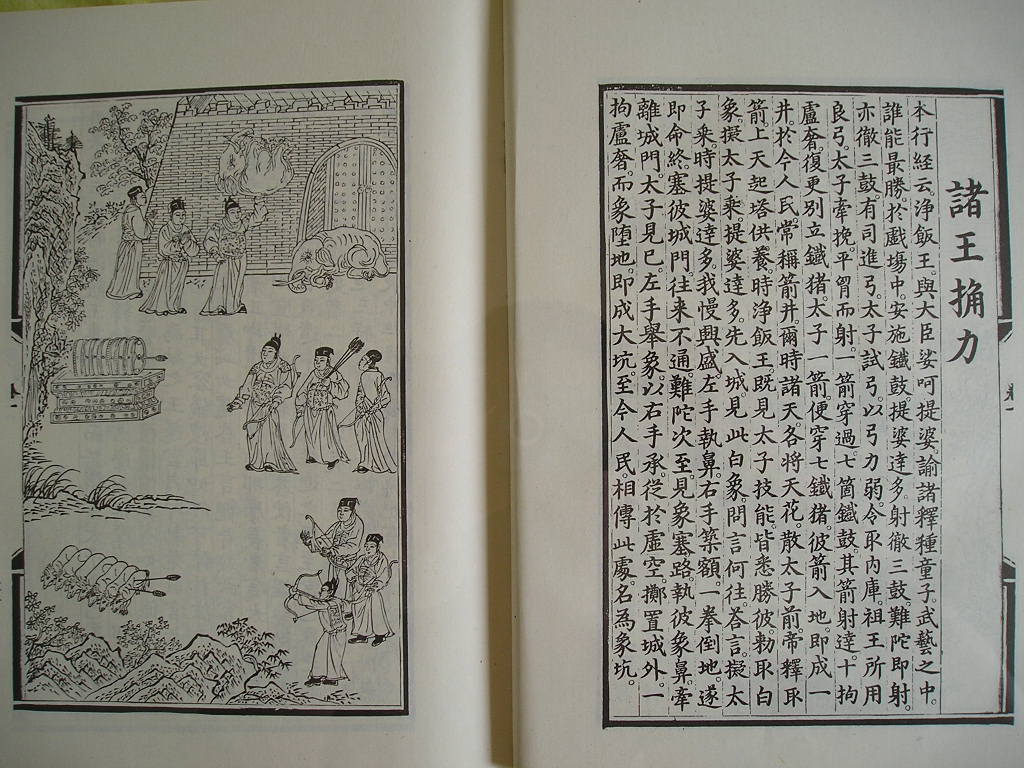 諸王捔力
本行經云。淨飯王。與大臣娑呵提婆。諭諸釋種童子。武藝之中。
誰能最勝。於戲塲中。安施鐵鼓。提婆達多。射徹三鼓。難陀即射。
亦徹三鼓。有司進弓。太子試弓。以弓力弱。令取内庫。祖王所用
良弓。太子牽挽。平胷而射。一箭穿過。七箇鐵鼓。其箭射達。十拘
盧奢。復更別立鐵猪。太子一箭。便穿七鐵猪。彼箭入地。即成一
井。於今人民。常稱箭井。爾時諸天。各將天花。散太子前。帝釋取
箭。上天起塔供養。時淨飯王。既見太子技能。皆悉勝彼。勅取白
象。擬太子乘。提婆達多。先入城。見此白象。問言何往。荅言。擬太
子乘。時提婆達多。我慢興盛。左手執鼻。右手築額。一拳倒地。遂
即命終。塞彼城門。往來不通。難陀次至。見象塞路。執彼象鼻。牽
離城門。太子見已。左手舉象。以右手承。從於虛空。擲置城外。一
拘盧奢。而象墮地。即成大坑。至今人民。相傳此處。名為象坑。